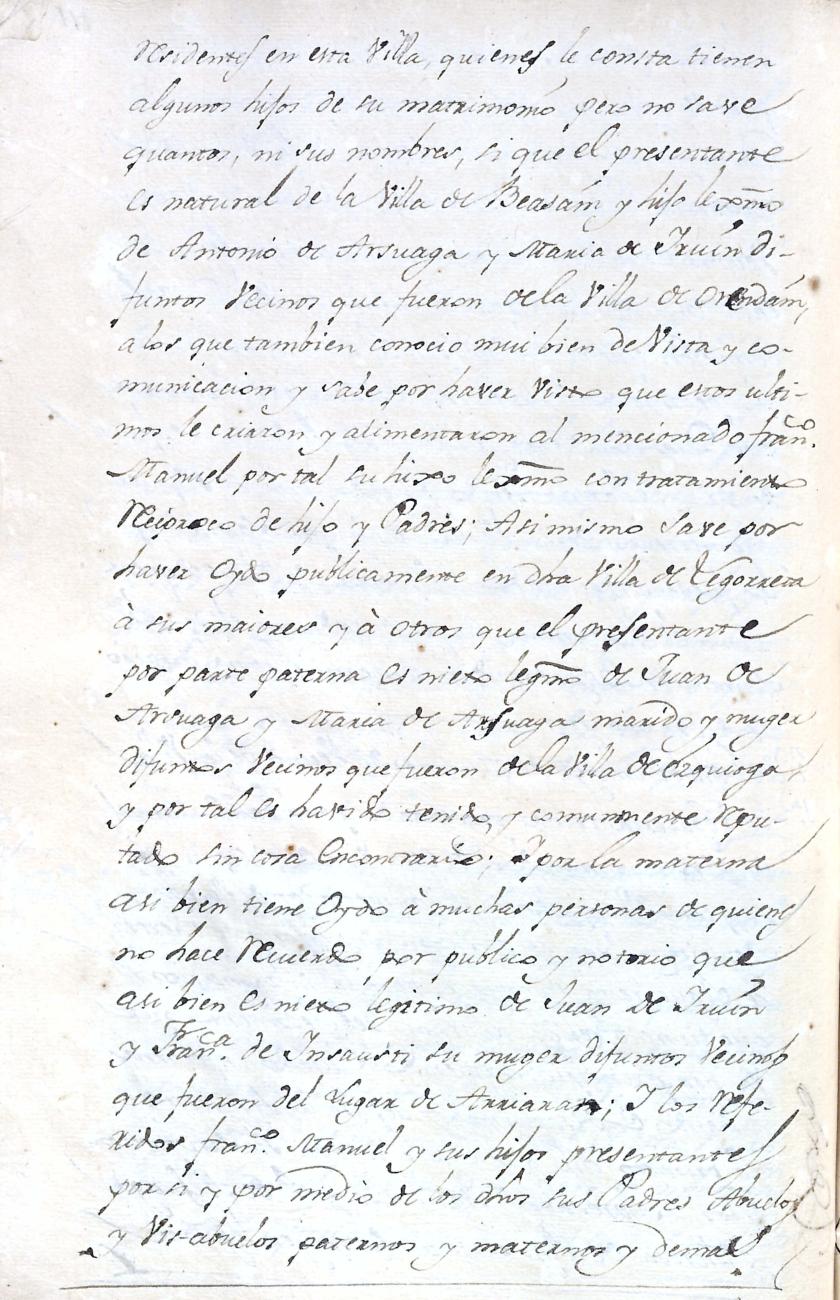 residentes en esta Villa, quienes le consta tienen
algunos hijos de su matrimonio pero no save
quantos, ni sus nombres, si que el presentante
es natural de la Villa de Beasaín y hijo lexmo
de Antonio de Arsuaga y Maria de Iruín di-
funtos Vecinos que fueron de la Villa de Orendaín,
a los que tambien conocio mui bien de Vista y co-
municacion y sabe por haver Visto que estos ulti-
mos le criaron y alimentaron al mencionado franco.
Manuel por tal su hixo lexmo con tratamiento
Reciproco de hijo y Padres; Asimismo save por
haver Oydo publicamente en dha Villa de Legorreta
à sus maiores y à otros que el presentante
por parte paterna es nieto legmo de Juan de
Arsuaga y Maria de Arsuaga marido y muger
difuntos Vecinos que fueron de la Villa de Ezquioga
y por tal es havido tenido, y comunmente Repu-
tado sin cosa Encontrario; Y por la materna
asi bien tiene Oydo à muchas personas de quienes
no hace Recuerdo por publico y notorio que
asi bien es nieto legitimo de Juan de Iruín
y Franca. de Insausti su muger difuntos Vecinos
que fueron del Lugar de Arriarán; Y los Refe-
ridos franco. Manuel y sus hijos presentantes
por si y por medio de los dhos sus Padres Abuelos
y Vis-abuelos paternos y maternos y demas